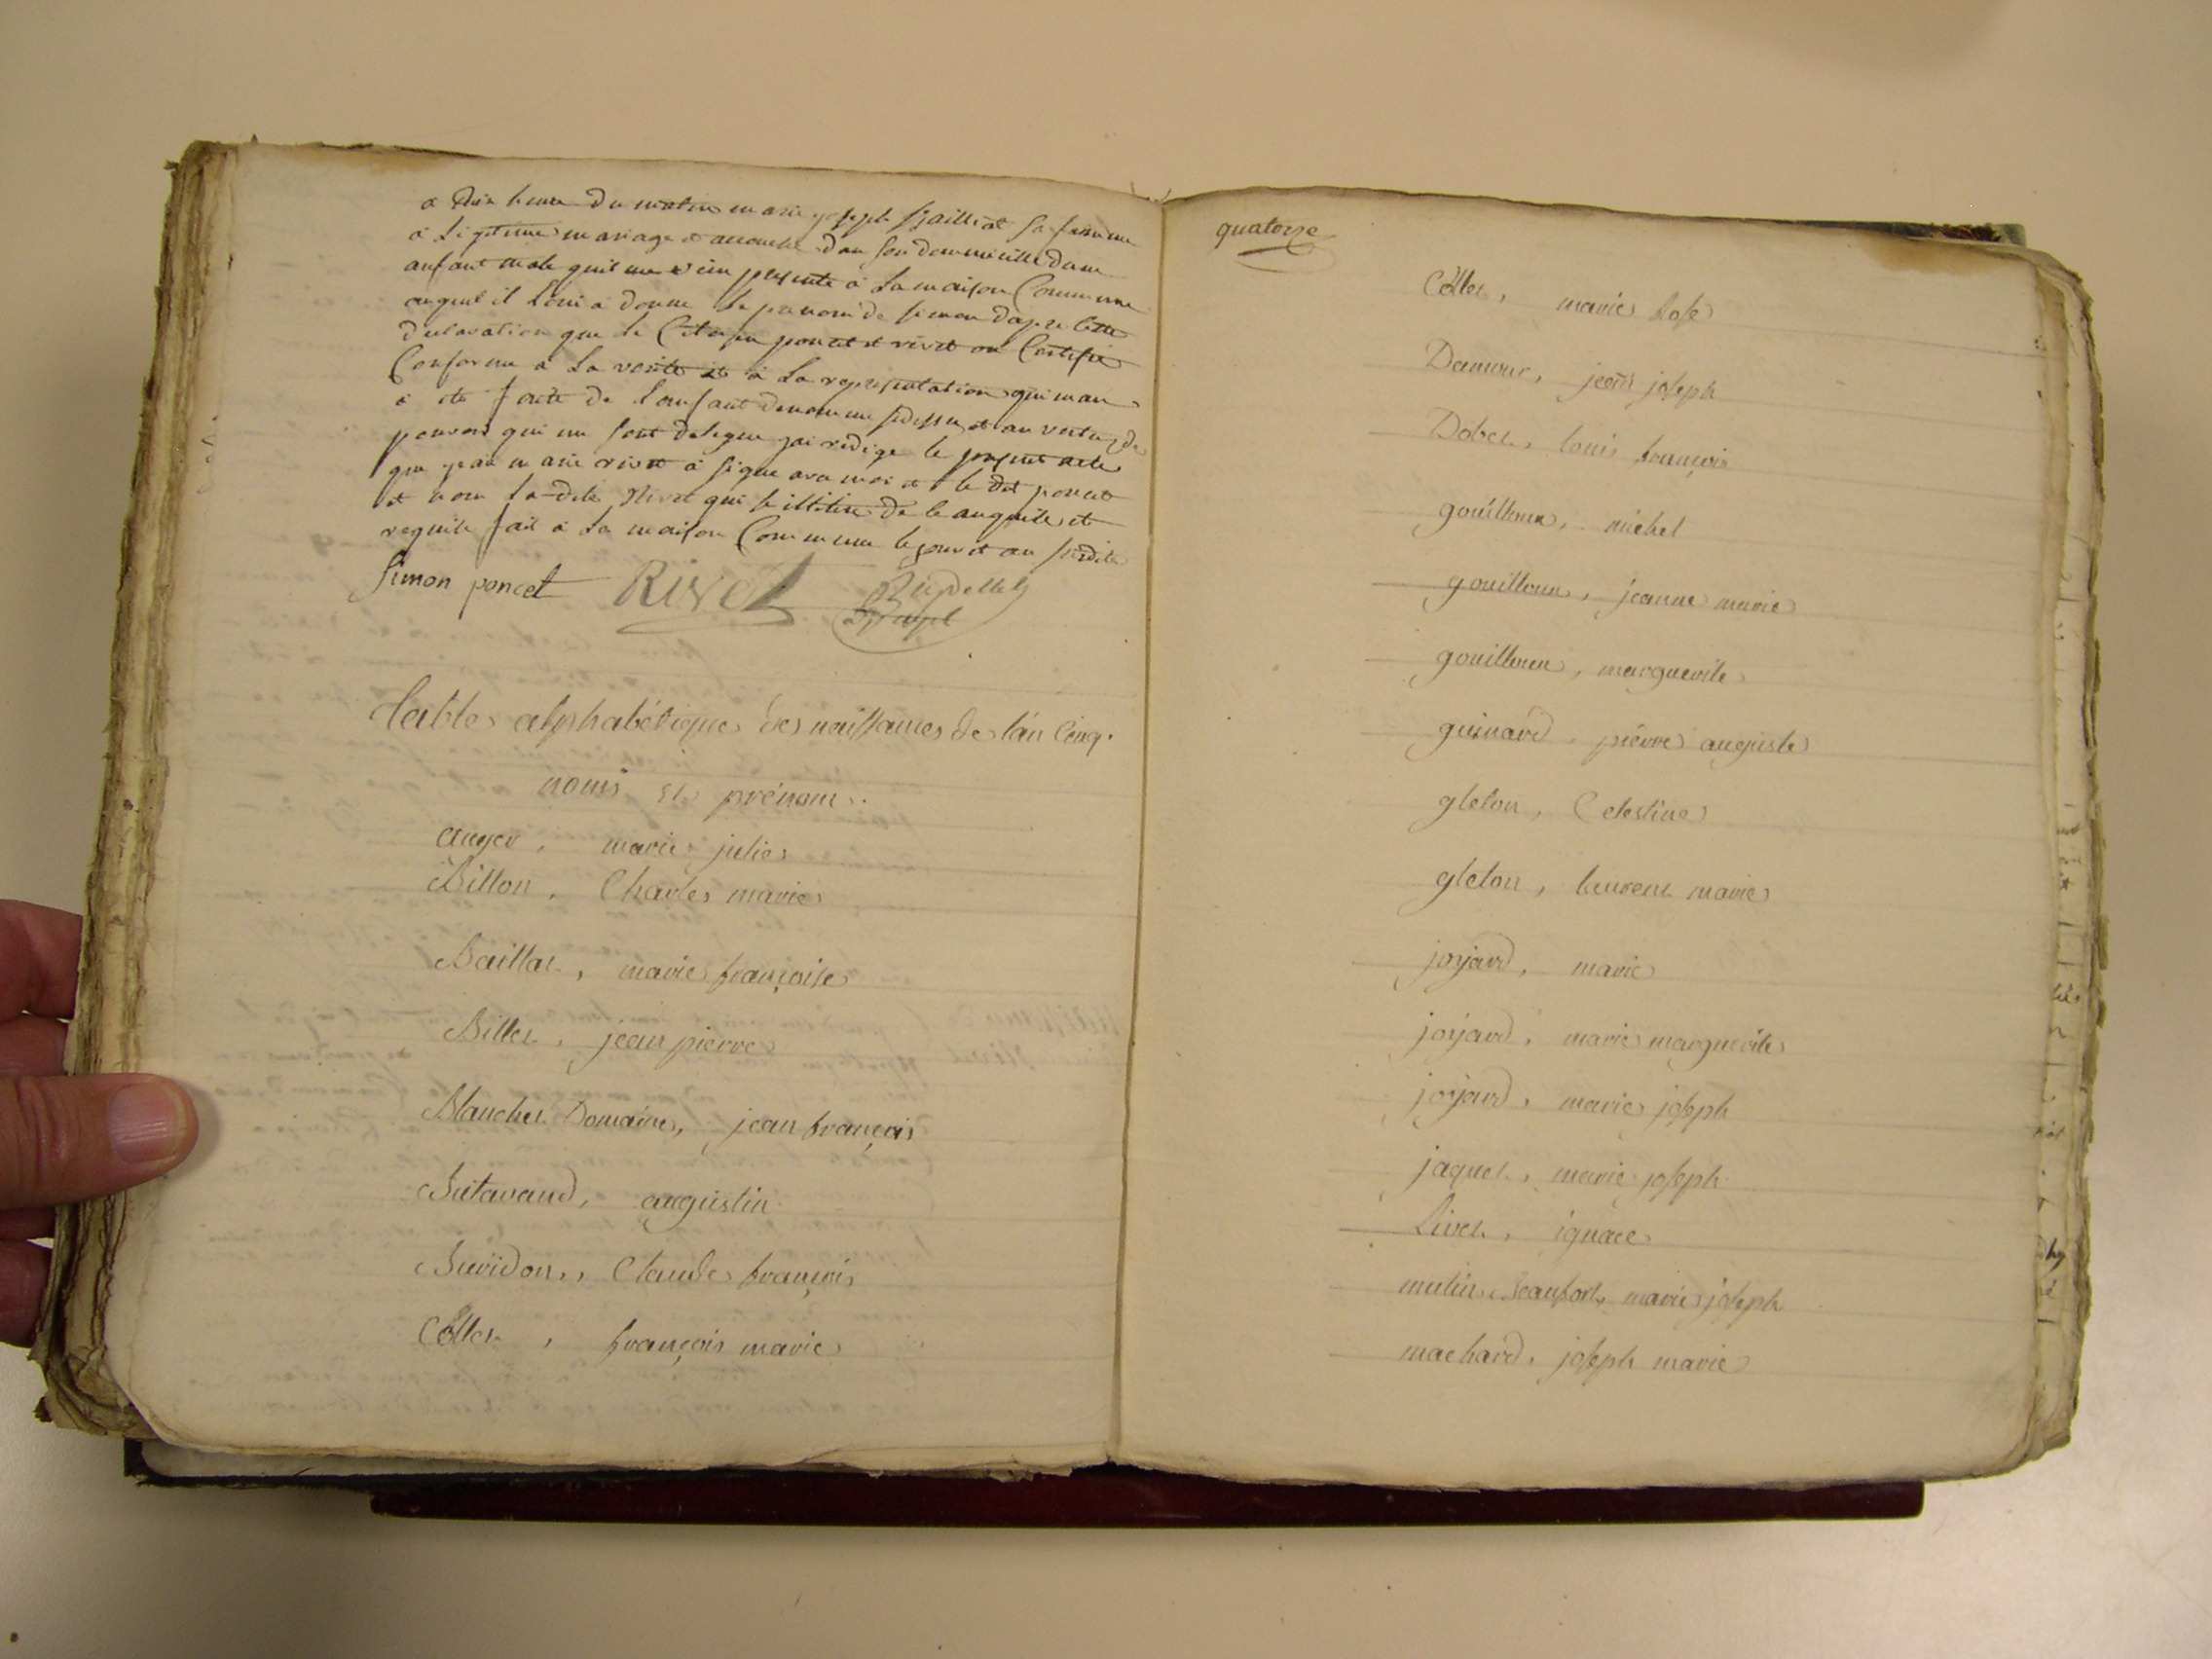 a Dix heure du matin marie joseph jailliot sa femme
a Ligitime mariage et accouché dan son dommicille dun
anfant male quil me vien presenté à La maison Commune
auquel il loui à donné le prenom de simon dapre cette
declaration que le Citoyen poncet et rivet on Certifié
Conforme à La verité et à La represantation qui man
a été faite de lanfant denommé sidessu et an vertu de
pouvoir qui me sont delegué jai redige le present acte
que marie rivet à signé avec moi et le dit poncet
et non la dite
requile fait à La maison Commune le jour et an susdit
simon poncet RIVET
table alphabétique des naissances de l'an cinq.
noms et prénoms.
auger, marie julie
Billon, Charles marie
Baillat, marie françoise
Billet, jean pierre
Blanchet Domaine, jean françois
Butavand, augustin
Buridon, Claude françois
Collet, françois marie
quatorze
Collet, marie Rose
jean joseph
Dober, louis françois
gouilloux, michel
gouilloux, jeanne marie
gouilloux, marguerite
guinard, pierre auguste
gleton, Celestine
gleton, laurent marie
jorjard, marie
jorjard, marie marguerite
jorjard, marie joseph
jaquet, marie joseph
Livet, ignace
mutin Beaufort, marie joseph
machard, joseph marie